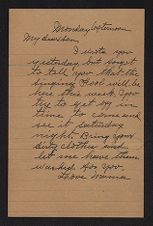 Monday afternoon
My dear son,
I wrote you
yesterday but forgot
to tell you that the
singing School will be
here this week. You
try to get up in
time to come and
see it saturday
night. Bring your
dirty clothes and
let me have them
washed for you.
Love Mama